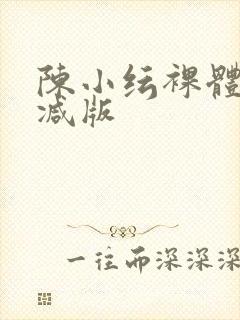 陳小纭裸體
减版
一往而深深深